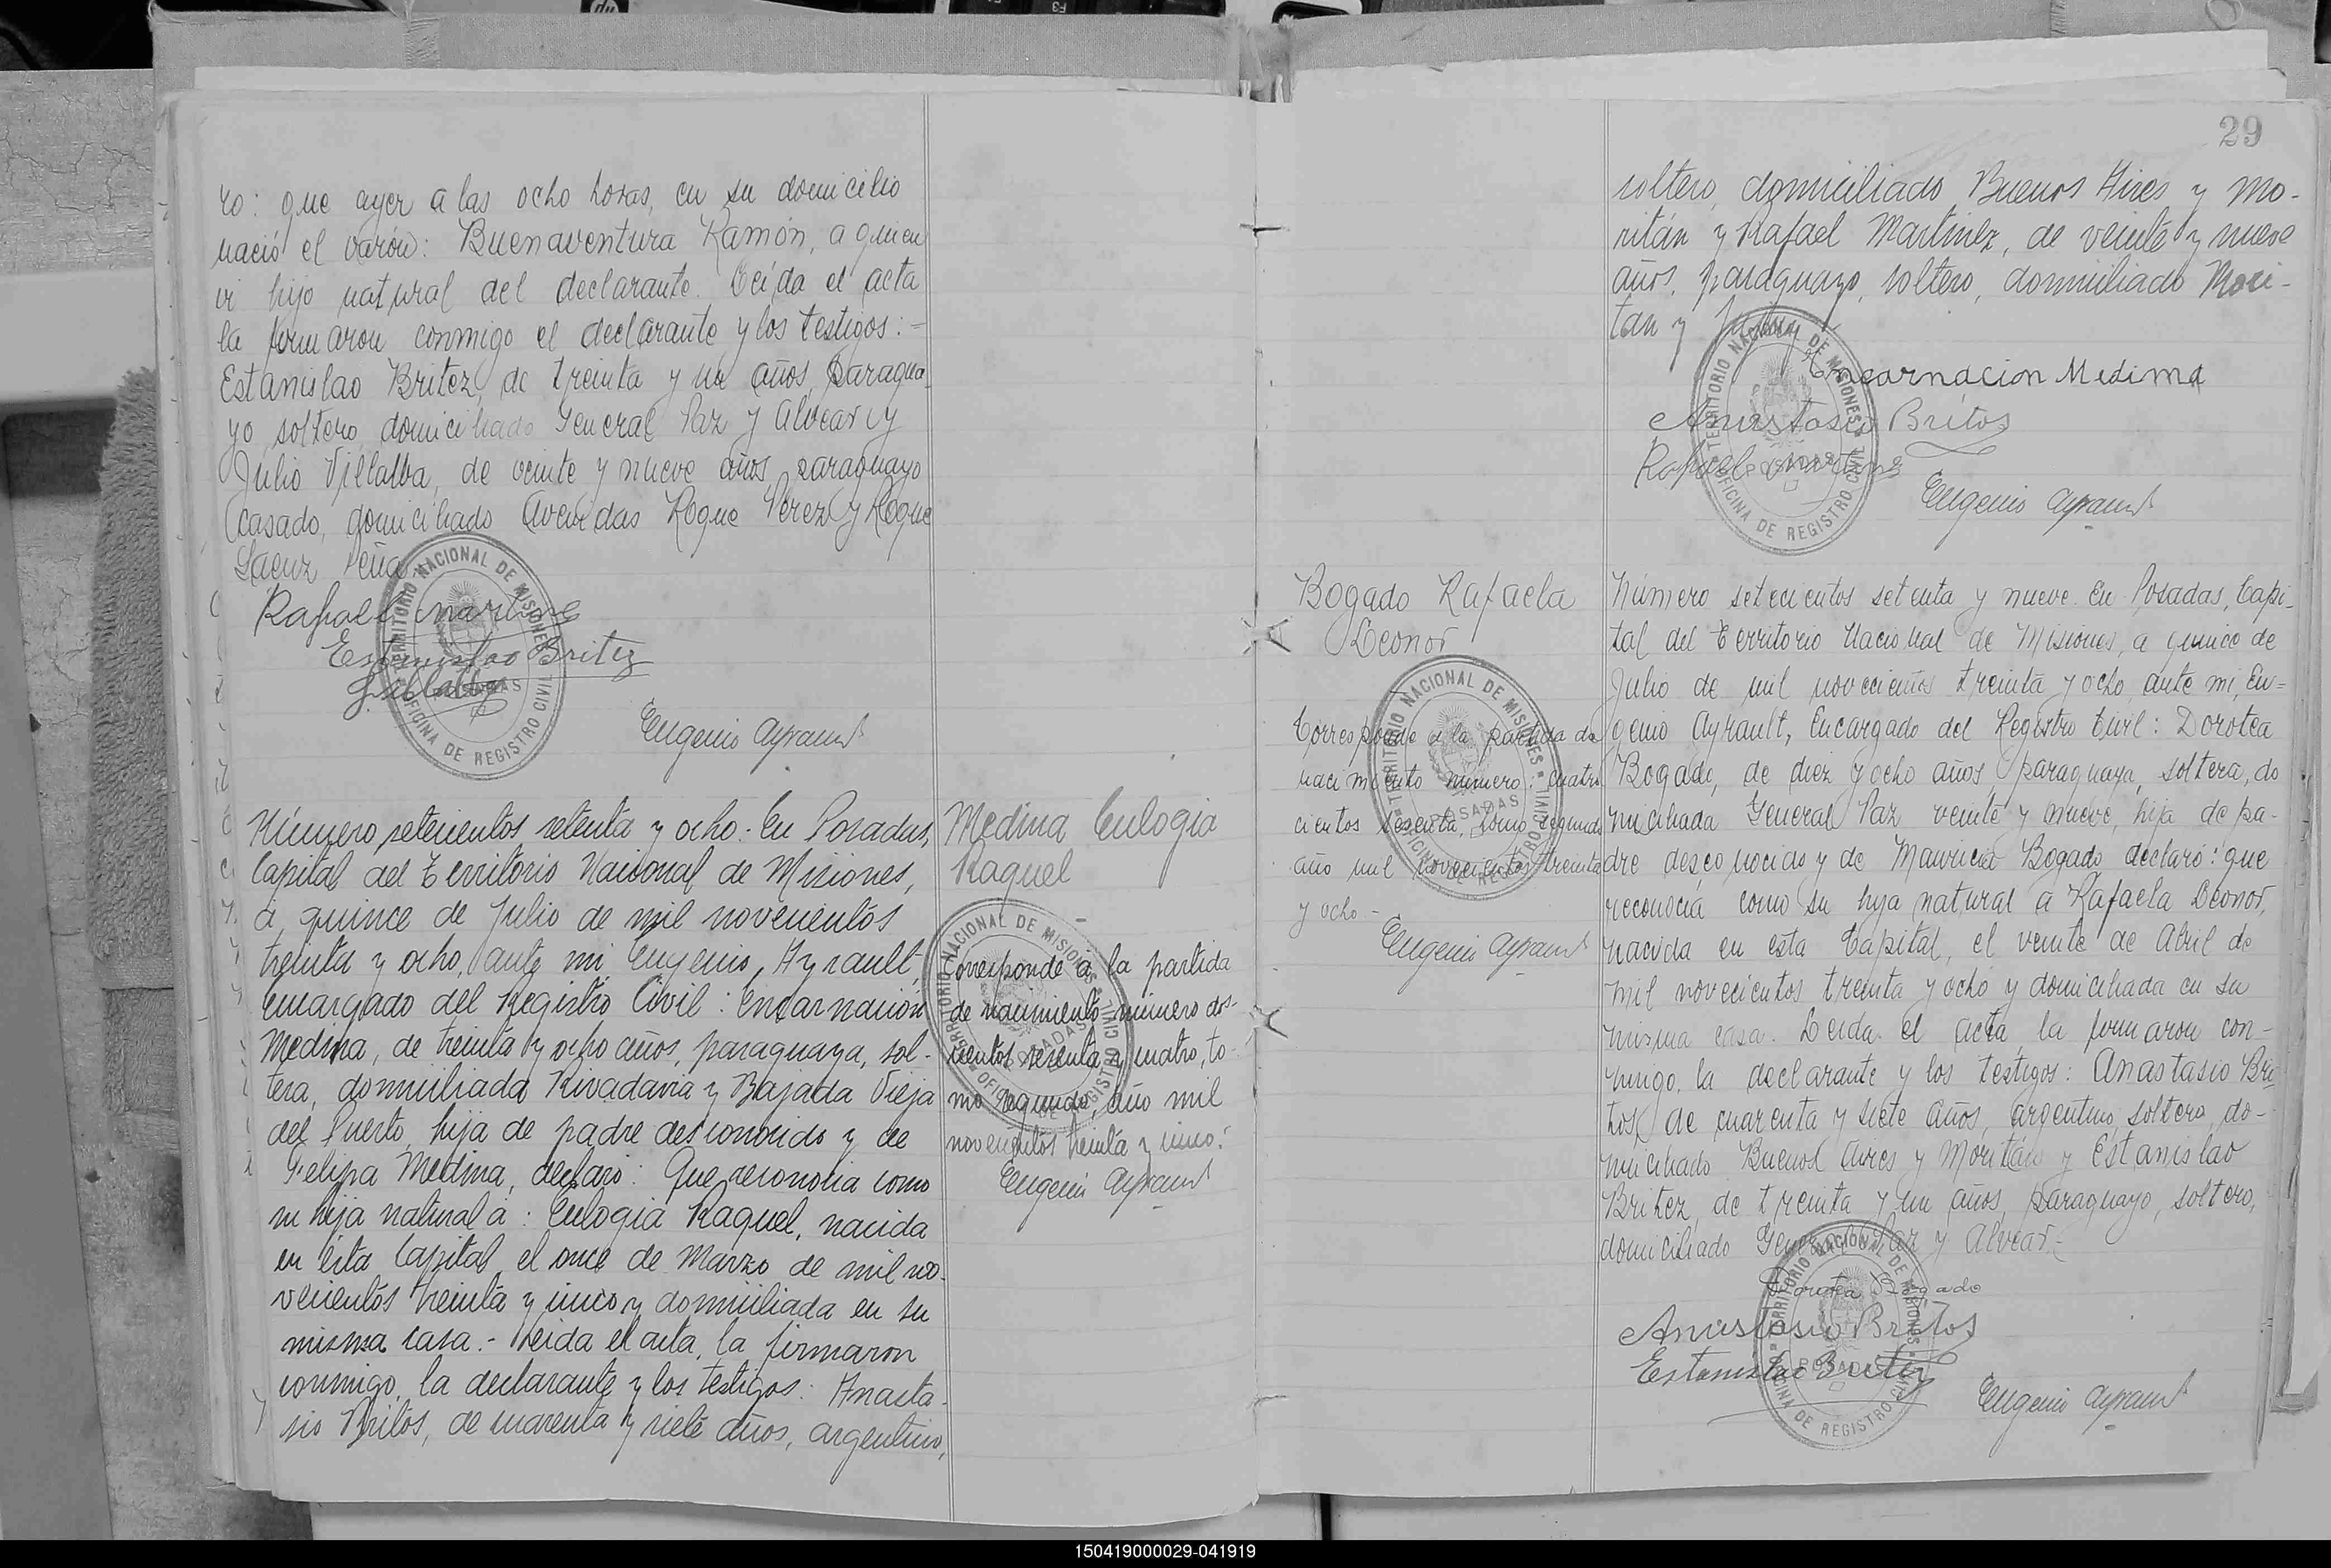 ro: que ayer a las ocho horas, en su domicilio
nació el varón: Buenaventura Ramón, a quien
vi hijo natural del declarante. Leída el acta
la firmaron conmigo el declarante y los testigos:-
Estanislao Britez, de treinta y un años, paragua-
yo soltero domiciliado General Paz y Alvear y
Julio Villalba, de veinte y nueve años, paraguayo
casado, domiciliado Avenidas Roque Perez y Roque
Saenz Peña
Rafael Martinez
Estanislao Britez
J. Villalba
Eugenio Ayrault
TERRITORIO NACIONAL DE MISIONES
POSADAS
OFICINA DE REGISTRO CIVIL
Número setecientos setenta y ocho: En Posadas,
Capital del Territorio Nacional de Misiones,
á quince de Julio de mil novecientos
treinta y ocho, ante mi, Eugenio Ayrault,
encargado del Registro Civil: Encarnación
Medina, de treinta y ocho años, paraguaya, sol-
tera, domiciliada Rivadavia y Bajada Vieja
del Puerto, hija de padre desconocido y de
Felipa Medina, declaró: Que reconocia como
su hija natural á: Eulogia Raquel, nacida
en esta Capital, el once de Marzo de mil no-
vecientos treinta y cinco y domiciliada en su
misma casa.- Leida el acta, la firmaron
conmigo, la declarante y los testigos: Anasta-
sio Britos, de cuarenta y siete años, argentino,
Medina Eulogia
Raquel
Corresponde á la partida
de nacimiento número dos-
cientos sesenta y cuatro, to-
mo segundo, año mil
novecientos treinta y cinco.-
Eugenio Ayrault
TERRITORIO NACIONAL DE MISIONES
POSADAS
OFICINA DE REGISTRO CIVIL
29
soltero, domiciliado Buenos Aires y Mo-
ritán y Rafael Martinez, de veinte y nueve
años, paraguayo, soltero, domiciliado Mori-
tan y Jujuy
Encarnacion Medina
Anastasio Britos
Rafael Martinez
Eugenio Ayrault
TERRITORIO NACIONAL DE MISIONES
POSADAS
OFICINA DE REGISTRO CIVIL
Bogado Rafaela
Leonor
Corresponde a la partida de
nacimiento número: cuatro
cientos sesenta, tomo segundo
año mil novecientos treinta
y ocho.-
Eugenio Ayrault
TERRITORIO NACIONAL DE MISIONES
POSADAS
OFICINA DE REGISTRO CIVIL
Número setecientos setenta y nueve. En Posadas, Capi-
tal del Territorio Nacional de Misiones, a quince de
Julio de mil novecientos treinta y ocho, ante mi, Eu-
genio Ayrault, Encargado del Registro Civil: Dorotea
Bogado, de diez y ocho años, paraguaya, soltera, do
miciliada General Paz veinte y nueve, hija de pa-
dre desconocido y de Mauricia Bogado declaró: que
reconocía como su hija natural a Rafaela Leonor,
nacida en esta Capital, el veinte de Abril de
mil novecientos treinta y ocho y domiciliada en su
misma casa. Leida el acta, la firmaron con-
migo, la declarante y los testigos: Anastasio Bri-
tos, de cuarenta y siete años, argentino, soltero, do-
miciliado Buenos Aires y Moritán y Estanislao
Britez, de treinta y un años, paraguayo, soltero,
domiciliado General Paz y Alvear.-
Dorotea Bogado
Anastasio Britos
Estanislao Britez
Eugenio Ayrault
TERRITORIO NACIONAL DE MISIONES
POSADAS
OFICINA DE REGISTRO CIVIL
150419000029-041919